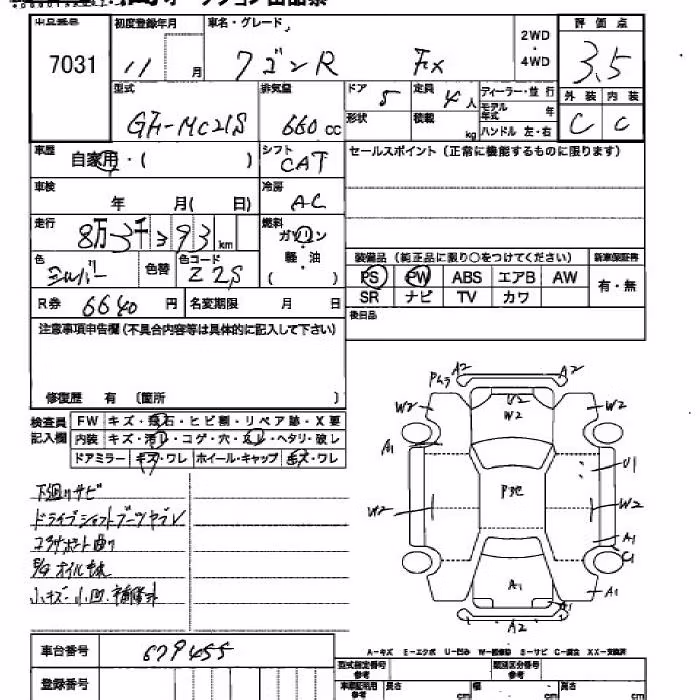 オークション出品票
出品番号 初度登録年月 車名・グレード 2WD・4WD 評価点
7031 11 月 ワゴンR FX 3.5
型式 排気量 ドア 5 定員 4人 ディーラー・並行 外装 内装
GF-MC21S 660cc 形状 積載 kg モデル年式 年 C C
ハンドル 左・右
車歴 自家用・( ) シフト CAT セールスポイント(正常に機能するものに限ります)
車検 年 月( 日) 冷房 AC
走行 8万3千393km 燃料 ガソリン
軽・油
( )
色 シルバー 色替 色コード Z2S 装備品(純正品に限り○をつけてください) 新車保証書
PS PW ABS エアB AW 有・無
R券 6640円 名変期限 月 日 SR ナビ TV カワ
注意事項申告欄(不具合内容等は具体的に記入して下さい) 後日品
修復歴 有 〔箇所 〕
検査員記入欄 FW キズ・飛石・ヒビ割・リペア跡・X要
内装 キズ・汚レ・コゲ・穴・スレ・ヘタリ・破レ
ドアミラー キズ・ワレ ホイール・キャップ キズ・ワレ
下廻りサビ
ドライブシャフトブーツヤブレ
コアサポート曲り
小キズ・小凹・補修跡
A2 A2
W2 U2 W2 W2
A1 U1
W2 W2
A1
C1
A1 A1 A1
A2
A-キズ E-エクボ U-凹み W-補修跡 S-サビ C-腐食 XX-交換済
車台番号 679455 型式指定番号 参考 類別区分番号 参考
登録番号 車庫証明用 参考 長さ cm 幅 cm 高さ cm